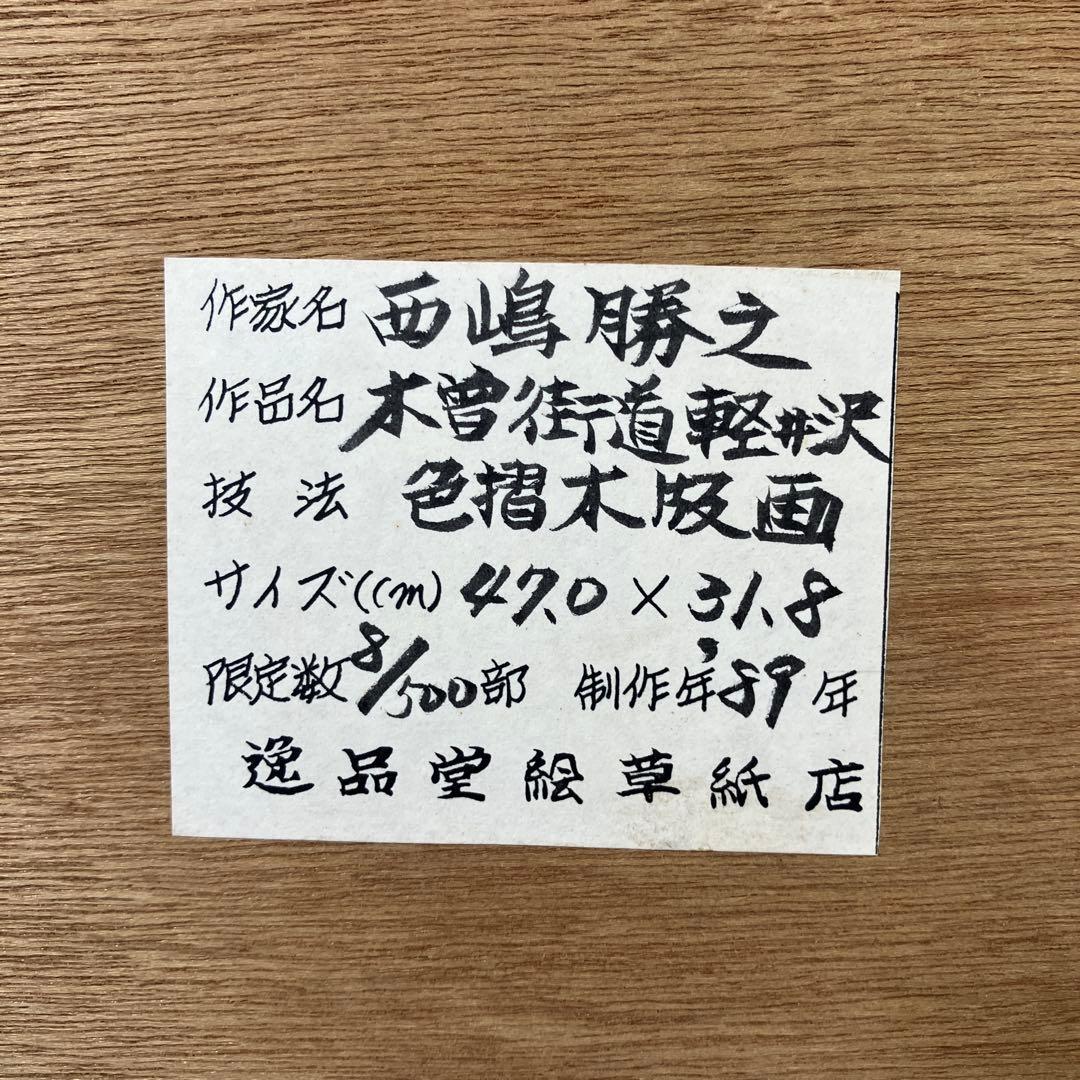 作家名 西嶋勝之
作品名 木曽街道軽井沢
技法 色摺木版画
サイズ(cm) 47.0 × 31.8
限定数 8/500部 制作年 '89年
逸品堂絵草紙店